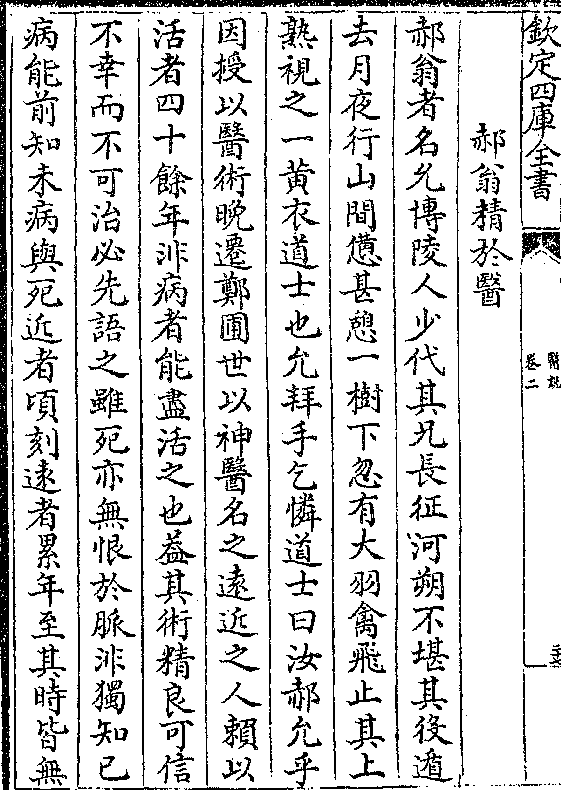 欽定四庫全書
醫說
卷二
郝翁精於醫
郝翁者名允博陵人少代其兄長征河朔不堪其役遁
去月夜行山間憊甚憩一樹下忽有大羽禽飛止其上
熟視之一黄衣道士也允拜手乞憐道士曰汝郝允乎
因授以醫術晚遷鄭圃世以神醫名之遠近之人賴以
活者四十餘年非病者能盡活之也葢其術精良可信
不幸而不可治必先語之雖死亦無恨於脈非獨知已
病能前知未病與死近者頃刻遠者累年至其時皆無